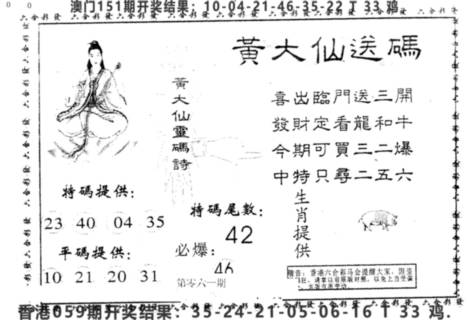 澳门151期开奖结果：10-04-21-46-35-22 T 33 鸡.
黃大仙送碼
黃大仙靈碼詩
喜出臨門送三開
發財定看龍和牛
今期可買三二爆
中特只尋二五六
生肖提供
特碼提供：
23 40 04 35
平碼提供：
10 21 20 31
特碼尾數：
42
必爆：
46
第零六一期
香港059期开奖结果：35-24-21-05-06-16 T 33 鸡.